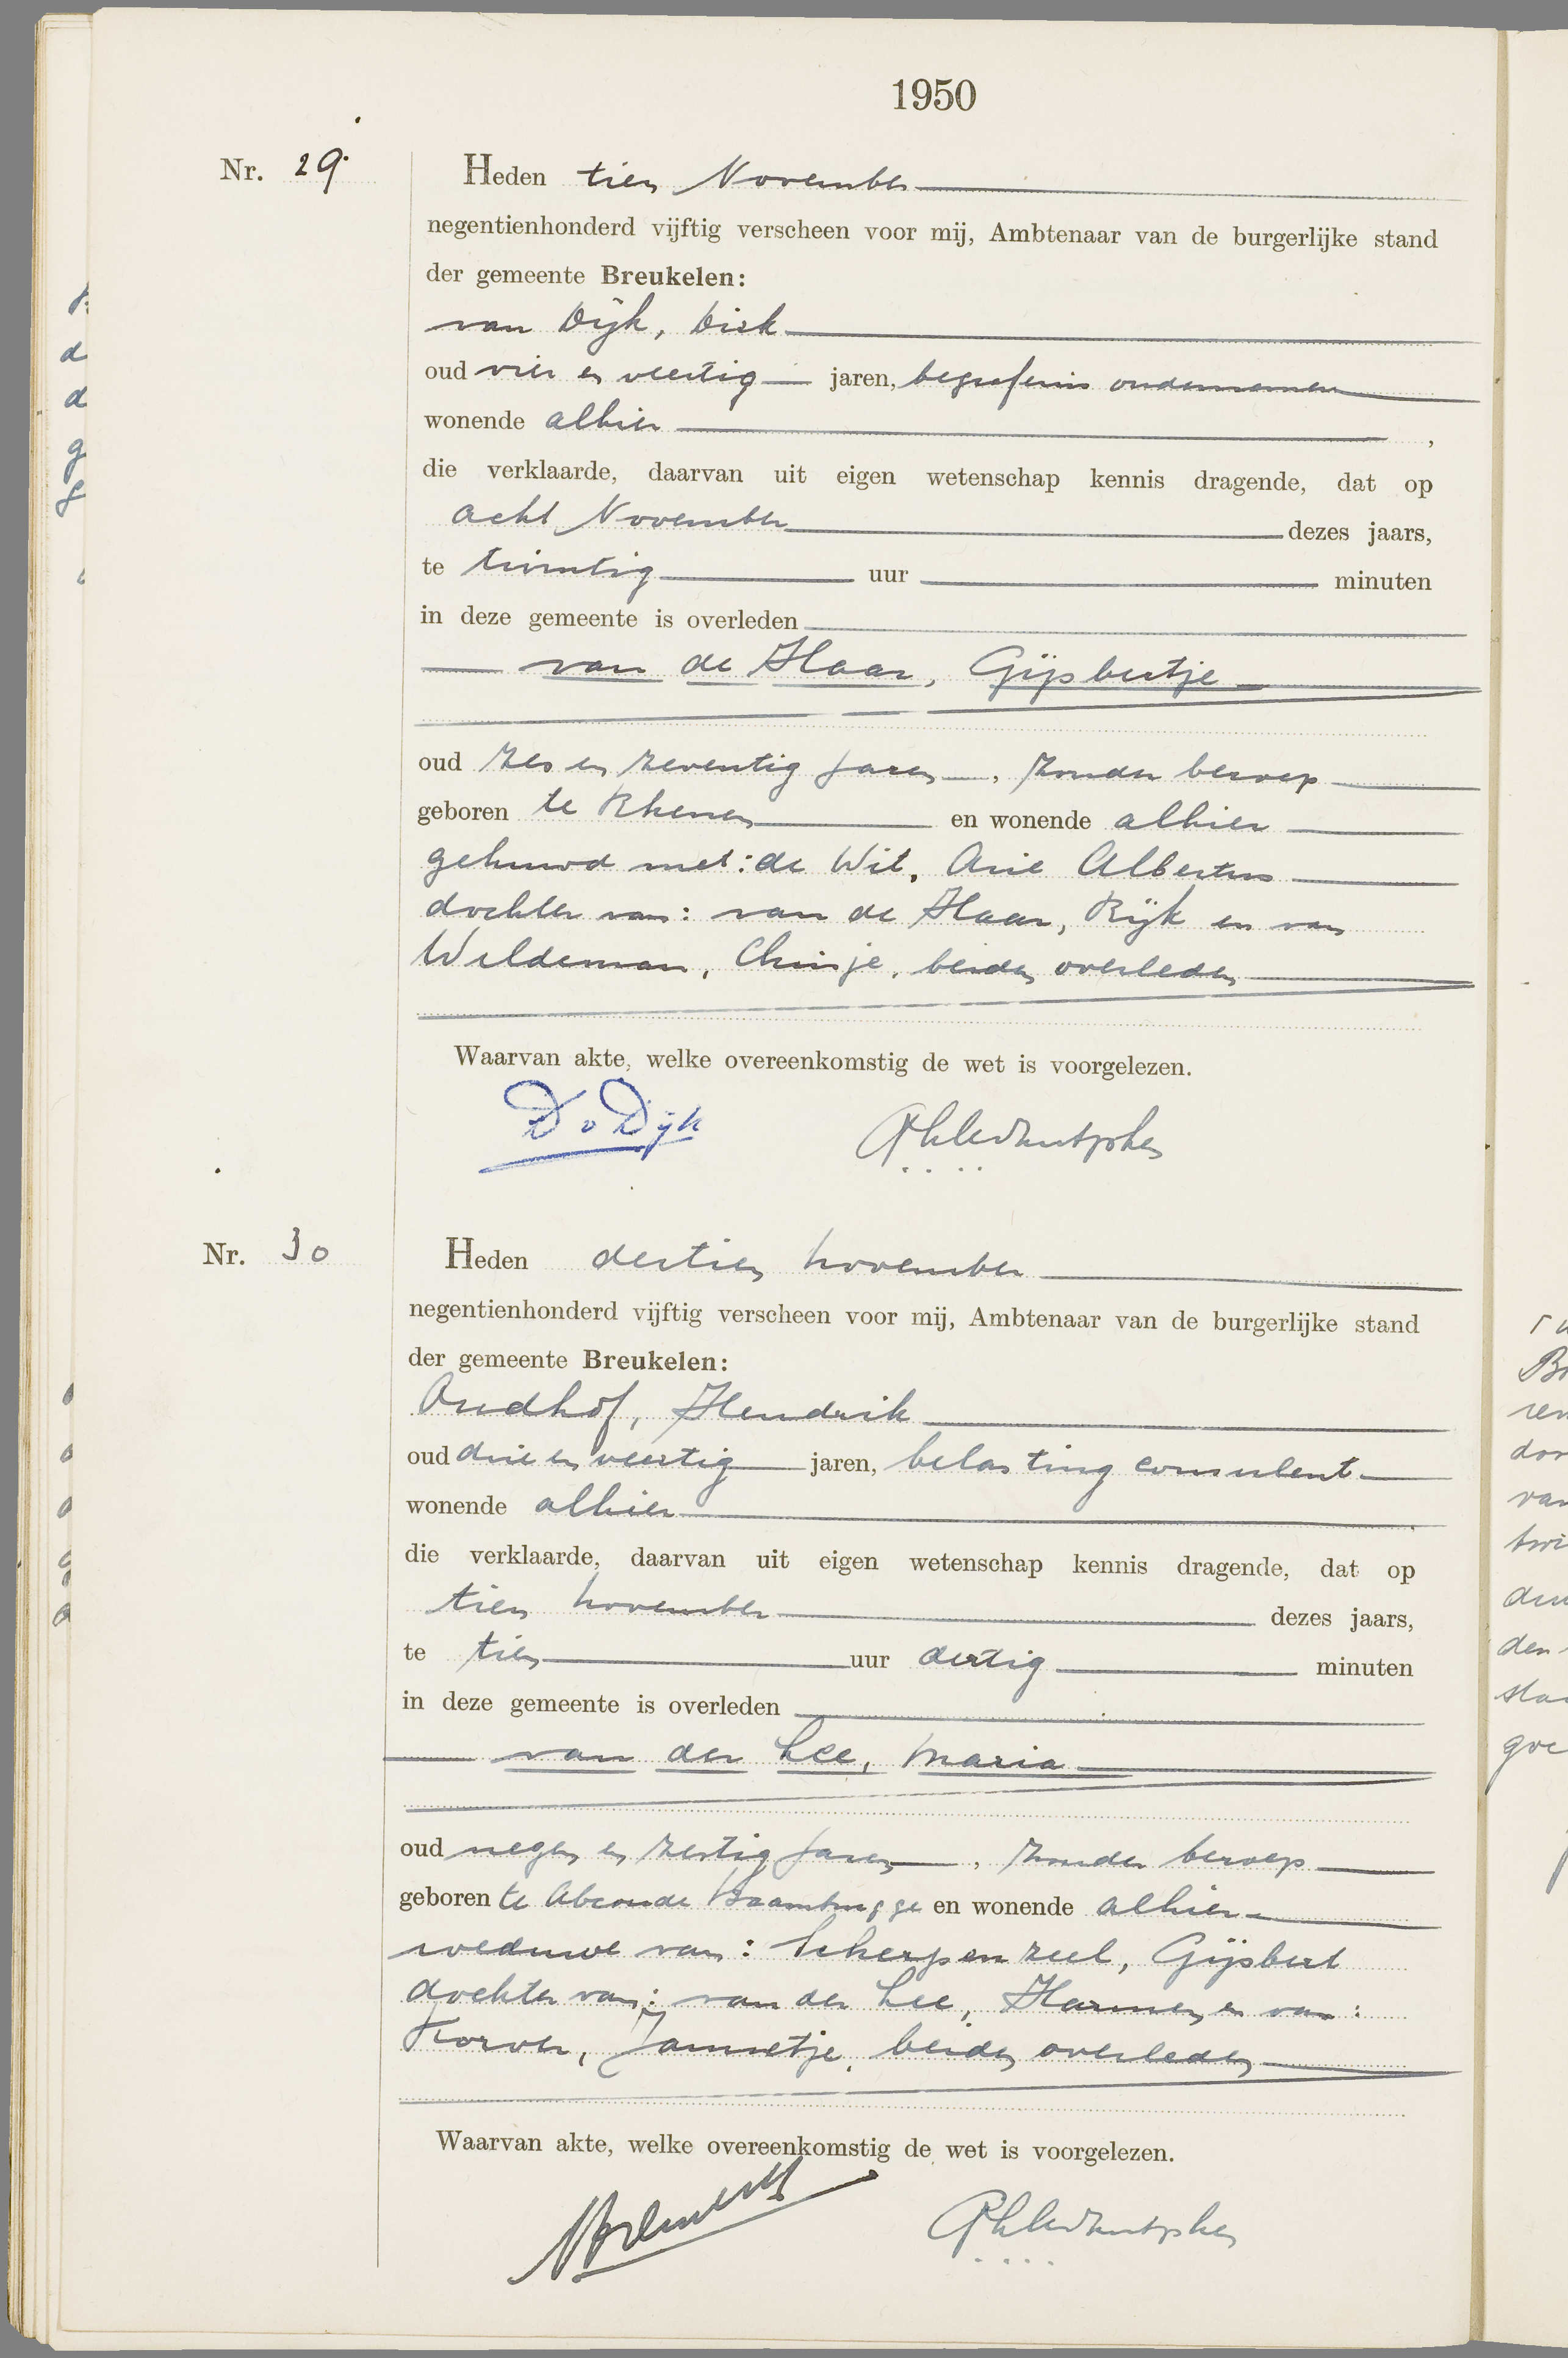 1950
Nr. 29.
Heden tien November
negentienhonderd vijftig verscheen voor mij, Ambtenaar van de burgerlijke stand
der gemeente Breukelen:
van Dijk, Dirk
oud vier en veertig jaren, begrafenis ondernemer
wonende alhier ,
die verklaarde, daarvan uit eigen wetenschap kennis dragende, dat op
acht November dezes jaars,
te twintig uur minuten
in deze gemeente is overleden
van de Haar, Gijsbertje
oud zes en zeventig jaren, zonder beroep
geboren te Rhenen en wonende alhier
gehuwd met: de Wit, Arie Albertus
dochter van: van de Haar, Rijk en van
Wildeman, Chrisje, beiden overleden
Waarvan akte, welke overeenkomstig de wet is voorgelezen.
D v Dijk
Nr. 30
Heden dertien november
negentienhonderd vijftig verscheen voor mij, Ambtenaar van de burgerlijke stand
der gemeente Breukelen:
Oudhof, Hendrik
oud drie en veertig jaren, belasting consulent
wonende alhier
die verklaarde, daarvan uit eigen wetenschap kennis dragende, dat op
tien november dezes jaars,
te tien uur dertig minuten
in deze gemeente is overleden
van der Lee, Maria
oud negen en zestig jaren, zonder beroep
geboren te Abcoude Baambrugge en wonende alhier
weduwe van: Scherpenzeel, Gijsbert
dochter van: van der Lee, Harmen en van:
Korver, Jannetje, beiden overleden
Waarvan akte, welke overeenkomstig de wet is voorgelezen.